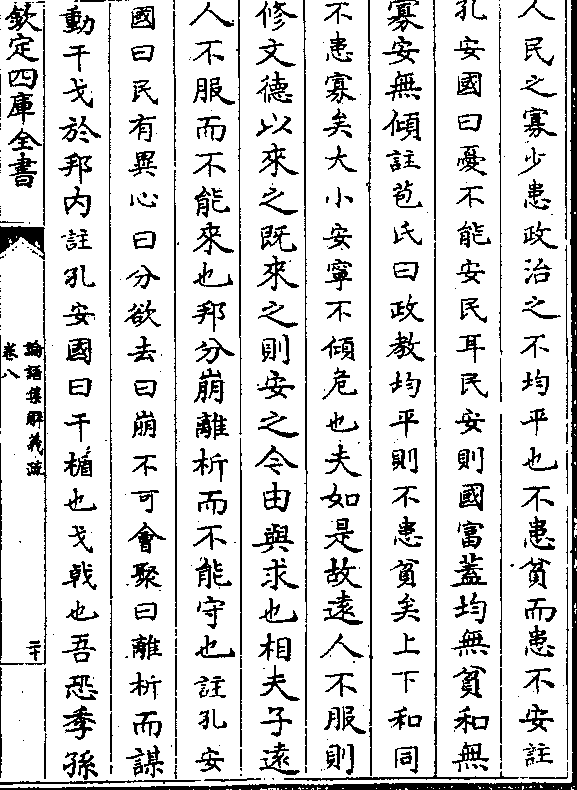 人民之寡少患政治之不均平也不患貧而患不安註
孔安國曰憂不能安民耳民安則國富蓋均無貧和無
寡安無傾註苞氏曰政教均平則不患貧矣上下和同
不患寡矣大小安寧不傾危也夫如是故逺人不服則
修文德以來之既來之則安之今由與求也相夫子逺
人不服而不能來也邦分崩離析而不能守也註孔安
國曰民有異心曰分欲去曰崩不可會聚曰離析而謀
動干戈於邦内註孔安國曰干楯也戈戟也吾恐季孫
欽定四庫全書
論語集解義疏
卷八
二十